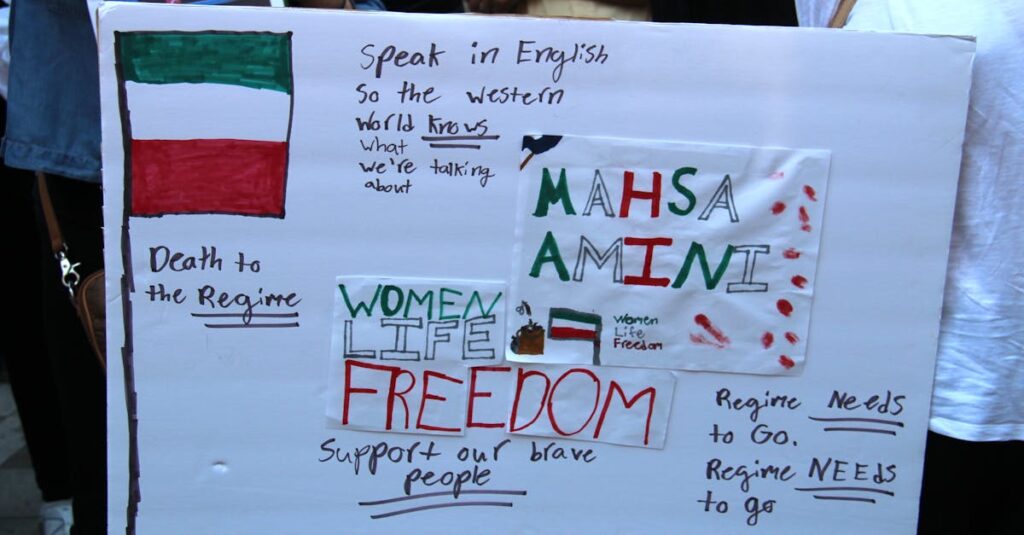 Speak in English
So the western
World Knows
what
we're talking
about
MAHSA
AMINI
Women
Life
Freedom
Death to
the Regime
WOMEN
LIFE
FREEDOM
Support our brave
people
Regime Needs
to Go.
Regime NEEds
to go